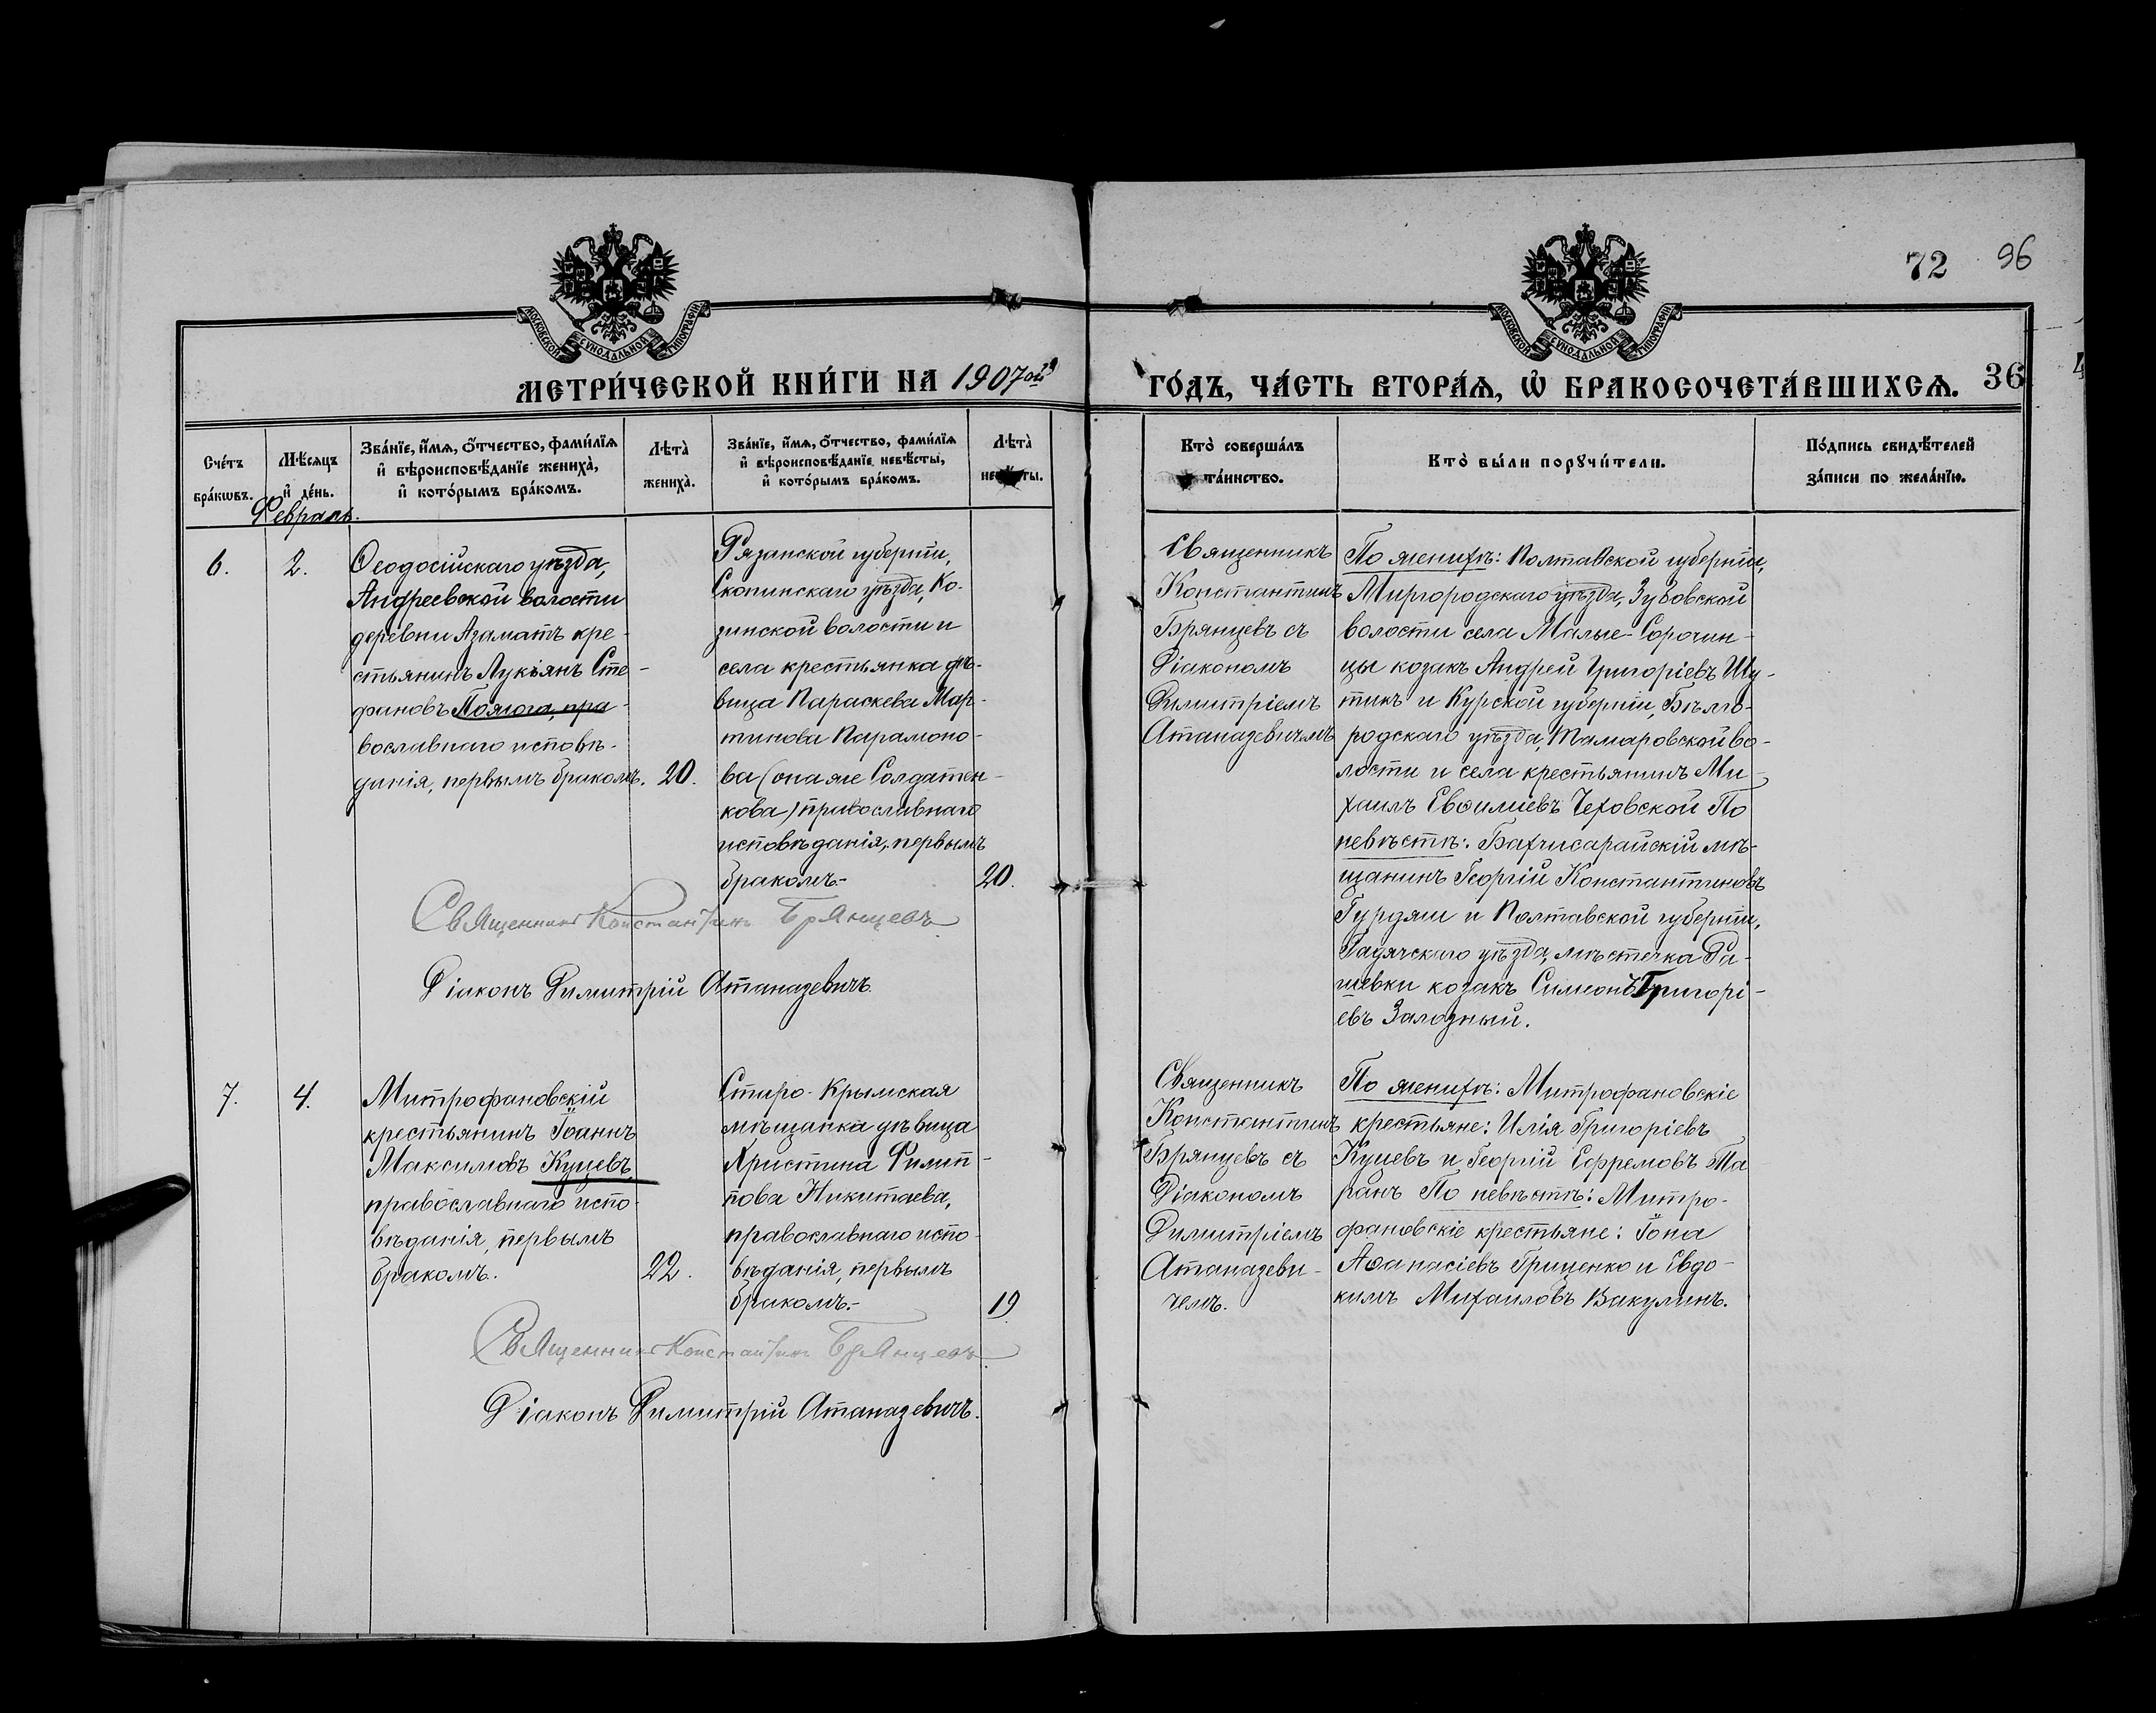 72 96
МОСКОВСКОЙ СѴНОДАЛЬНОЙ ТИПОГРАФІИ
МОСКОВСКОЙ СѴНОДАЛЬНОЙ ТИПОГРАФІИ
МЕТРИ́ЧЕСКОЙ КНИ́ГИ НА 1907ой
ГО́ДЪ, ЧА́СТЬ ВТОРА́Ѧ, Ѡ҆ БРАКОСОЧЕТА́ВШИХСѦ. 36
Сче́тъ
бра́кѡвъ.
Мѣ́сѧцъ
и҆ де́нь.
Зва́нїе, и҆́мѧ, ѻ҆́тчество, фами́лїѧ
и҆ вѣроисповѣ́данїе жениха̀,
и҆ кото́рымъ бра́комъ.
Лѣта̀
жениха̀.
Зва́нїе, и҆́мѧ, ѻ҆́тчество, фами́лїѧ
и҆ вѣроисповѣ́данїе невѣ́сты,
и҆ кото́рымъ бра́комъ.
Лѣта̀
Кто̀ соверша́лъ
та́инство.
Кто̀ бы́ли порꙋчи́тели.
По́дпись свидѣ́телей
за́писи по жела́нїю.
Февраль.
6.
2.
Ѳеодосійскаго уѣзда,
Андреевской волости
деревни Азаматъ кре-
стьянинъ Лукіянъ Сте-
фановъ Помога, пра-
вославнаго исповѣ-
данія, первымъ бракомъ.
20.
Рязанской губерніи,
Скопинскаго уѣзда, Ко-
зинской волости и
села крестьянка дѣ-
вица Параскева Мар-
тинова Парамоно-
ва (она же Солдатен-
кова) православнаго
исповѣданія, первымъ
бракомъ.-
20.
Священникъ Константинъ Брянцевъ
Діаконъ Димитрій Атаназевичъ.
Священникъ
Константинъ
Брянцевъ съ
Діакономъ
Димитріемъ
Атаназевичемъ
По женихѣ: Полтавской губерніи,
Миргородскаго уѣзда, Зубовской
волости села Малые-Сорочин-
цы козакъ Андрей Григоріевъ Шу-
тикъ и Курской губерніи, Бѣлго-
родскаго уѣзда, Тамаровской во-
лости и села крестьянинъ Ми-
хаилъ Евѳиміевъ Чеховской По
невѣстѣ: Бахчисарайскій мѣ-
щанинъ Георгій Константиновъ
Гурджи и Полтавской губерніи,
Гадячскаго уѣзда, мѣстечка Ра-
шевки козакъ Симеонъ Григорі-
евъ Залозный.
7.
4.
Митрофановскій
крестьянинъ Іоаннъ
Максимовъ Куцевъ
православнаго испо-
вѣданія, первымъ
бракомъ.
22.
Старо-Крымская
мѣщанка дѣвица
Христина Филип-
пова Никитаева,
православнаго испо-
вѣданія, первымъ
бракомъ.-
19.
Священникъ Константинъ Брянцевъ
Діаконъ Димитрій Атаназевичъ.
Священникъ
Константинъ
Брянцевъ съ
Діакономъ
Димитріемъ
Атаназеви-
чемъ.
По женихѣ: Митрофановскіе
крестьяне: Илія Григоріевъ
Куцевъ и Георгій Ефремовъ Та-
ранъ По невѣстѣ: Митро-
фановскіе крестьяне: Іона
Аѳанасіевъ Гриценко и Евдо-
кимъ Михаиловъ Вакулинъ.